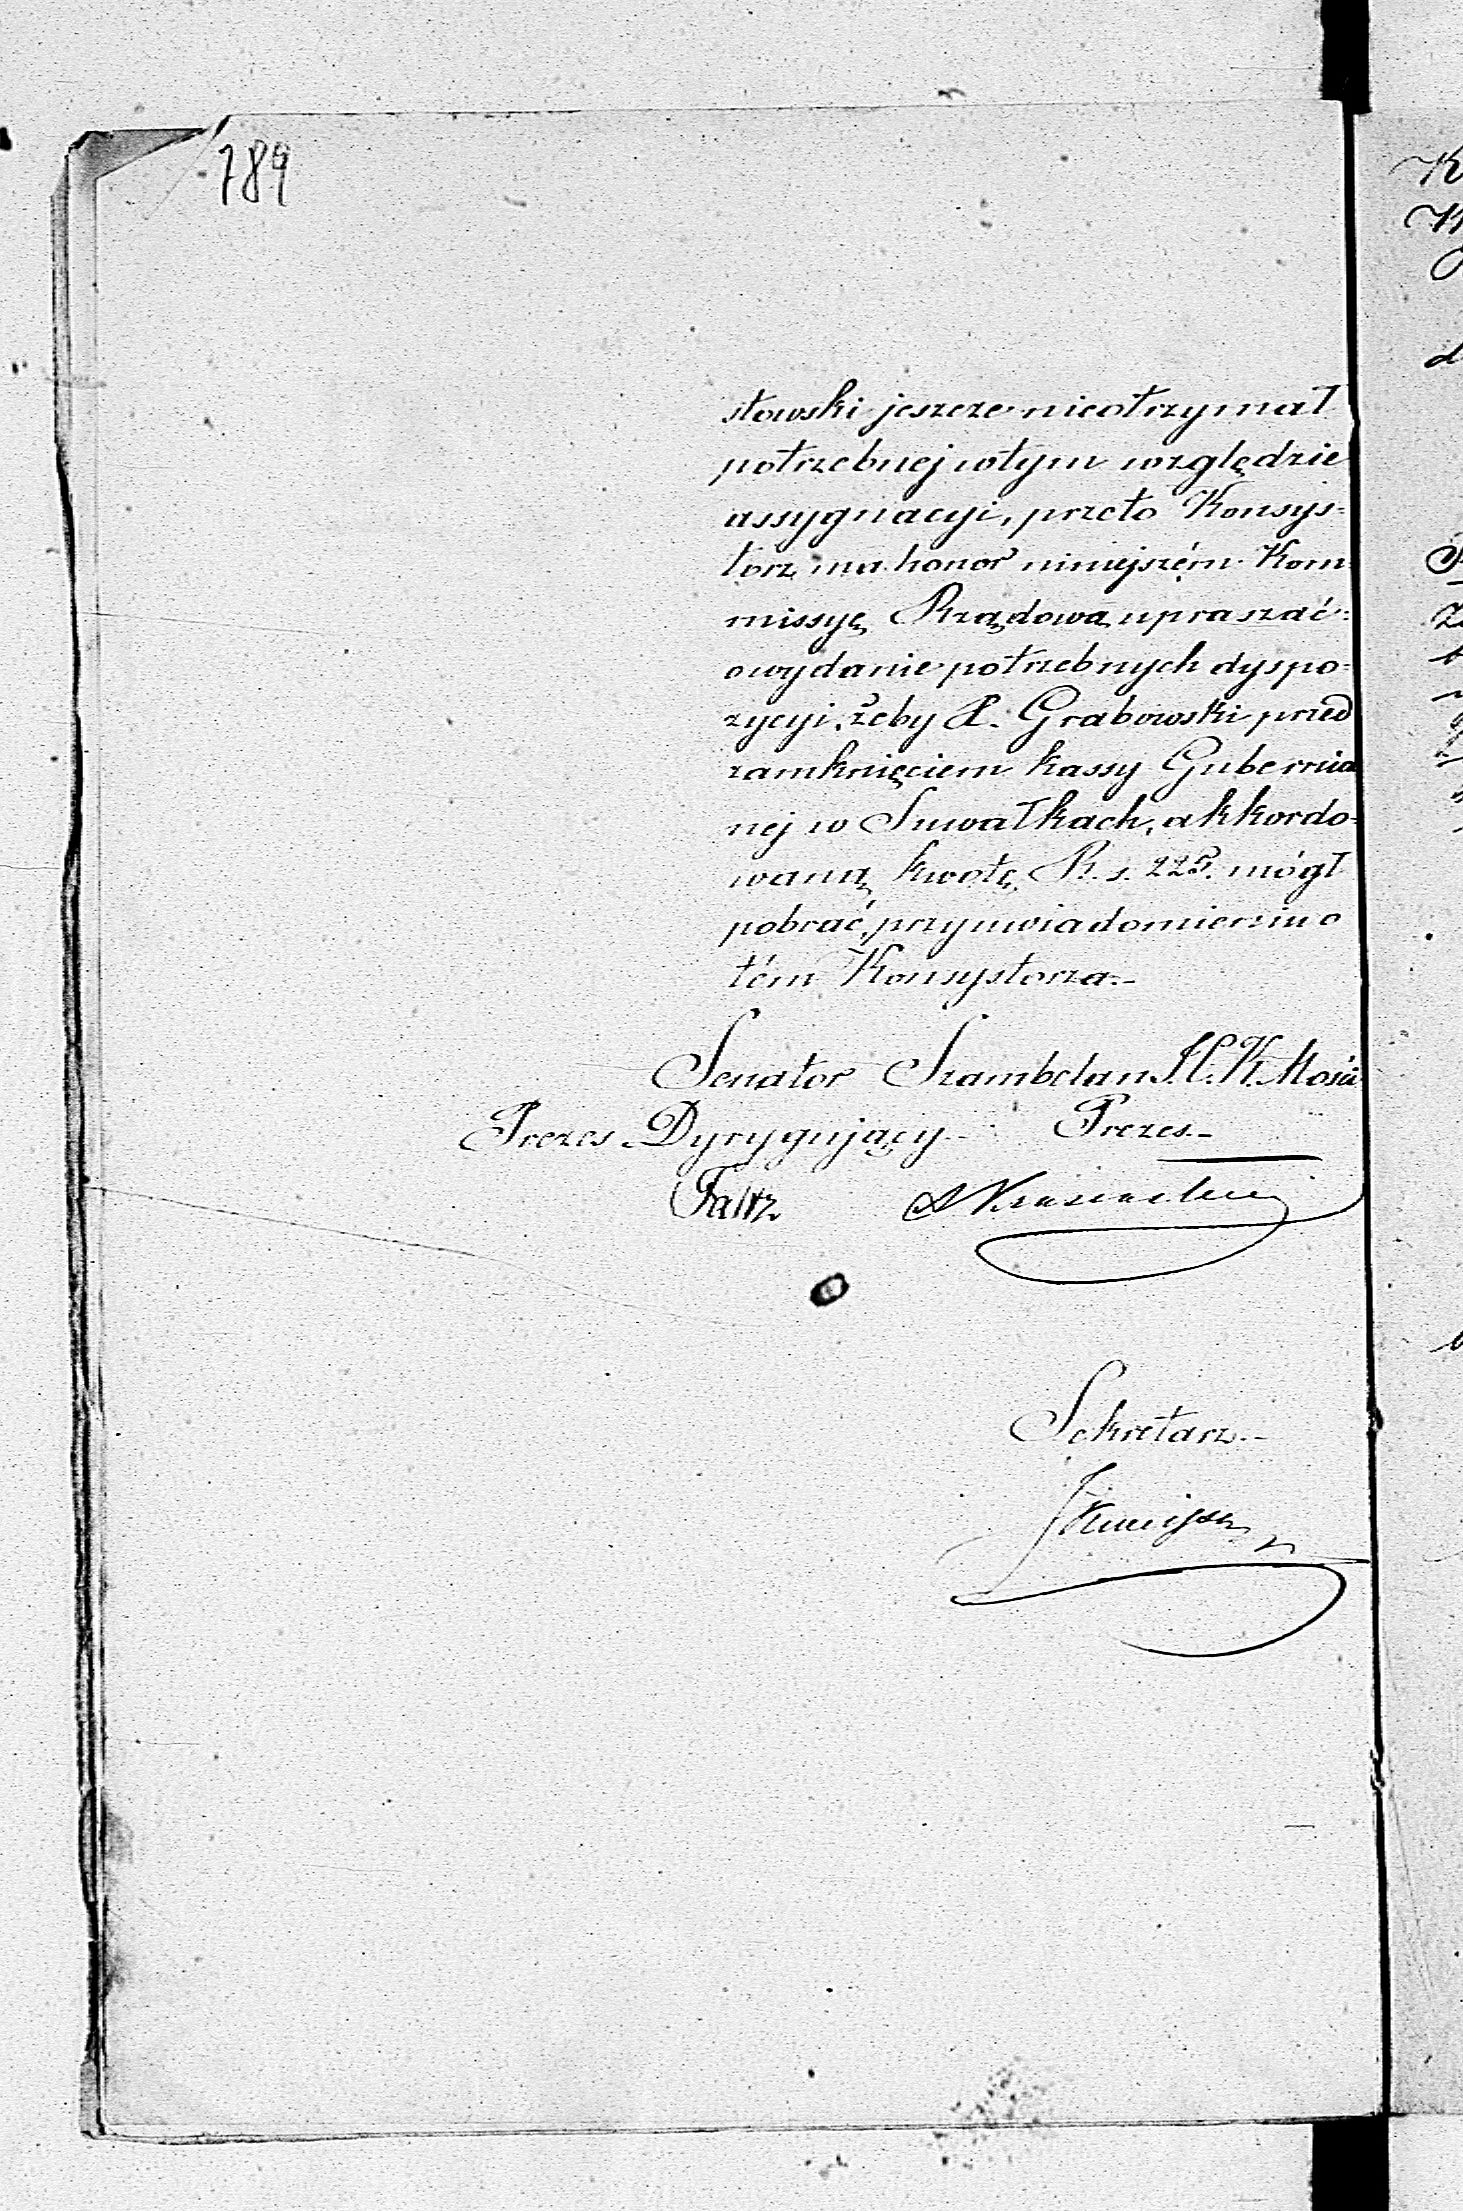 789
stowski jeszcze nieotrzymał
potrzebnej wtym względzie
assygnacyi, przeto Konsys=
torz ma honor niniejszém Kom
missyę Rządową upraszać
owydanie potrzebnych dyspo=
zycyi, żeby P. Grabowski przed
zamknięciem kassy Gubernia
nej w Suwałkach, akkordo=
waną kwotę R. s. 225. mógł
pobrać, przy uwiadomieniu o
tém Konsystorza.-
Senator Szambelan J. C. K. Mości
Prezes Dyrygujący Prezes.-
Faltz
Sekretarz.-